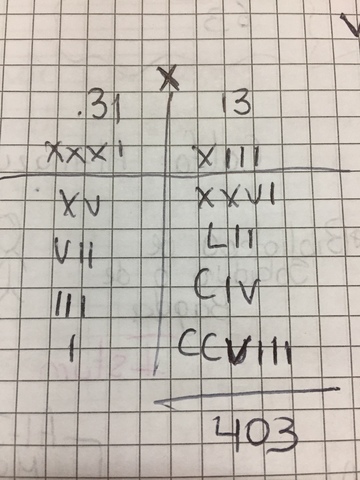 x
.31 13
XXXI XIII
XV XXVI
VII LII
III CIV
I CCVIII
403